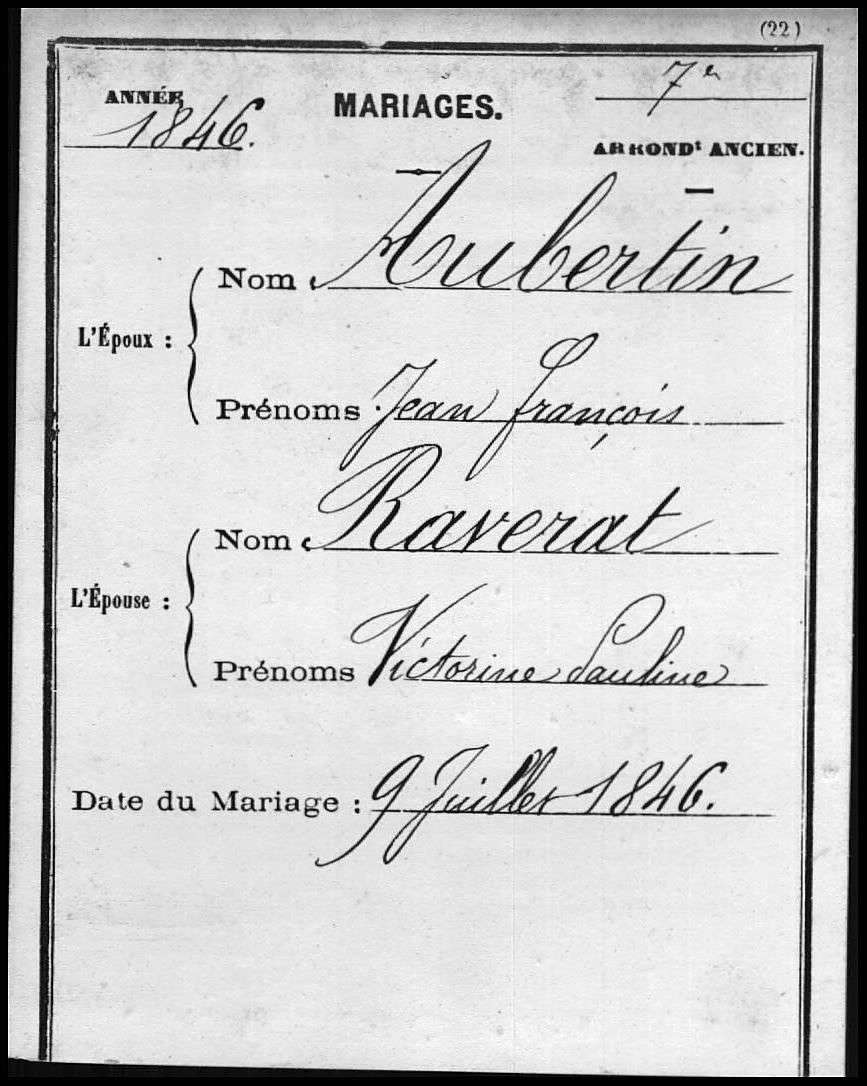 (22)
ANNÉE 1846. MARIAGES. 7e
ARRONDt ANCIEN.
L'Époux :
Nom Aubertin
Prénoms Jean François
L'Épouse :
Nom Raverat
Prénoms Victorine Pauline
Date du Mariage : 9 Juillet 1846.